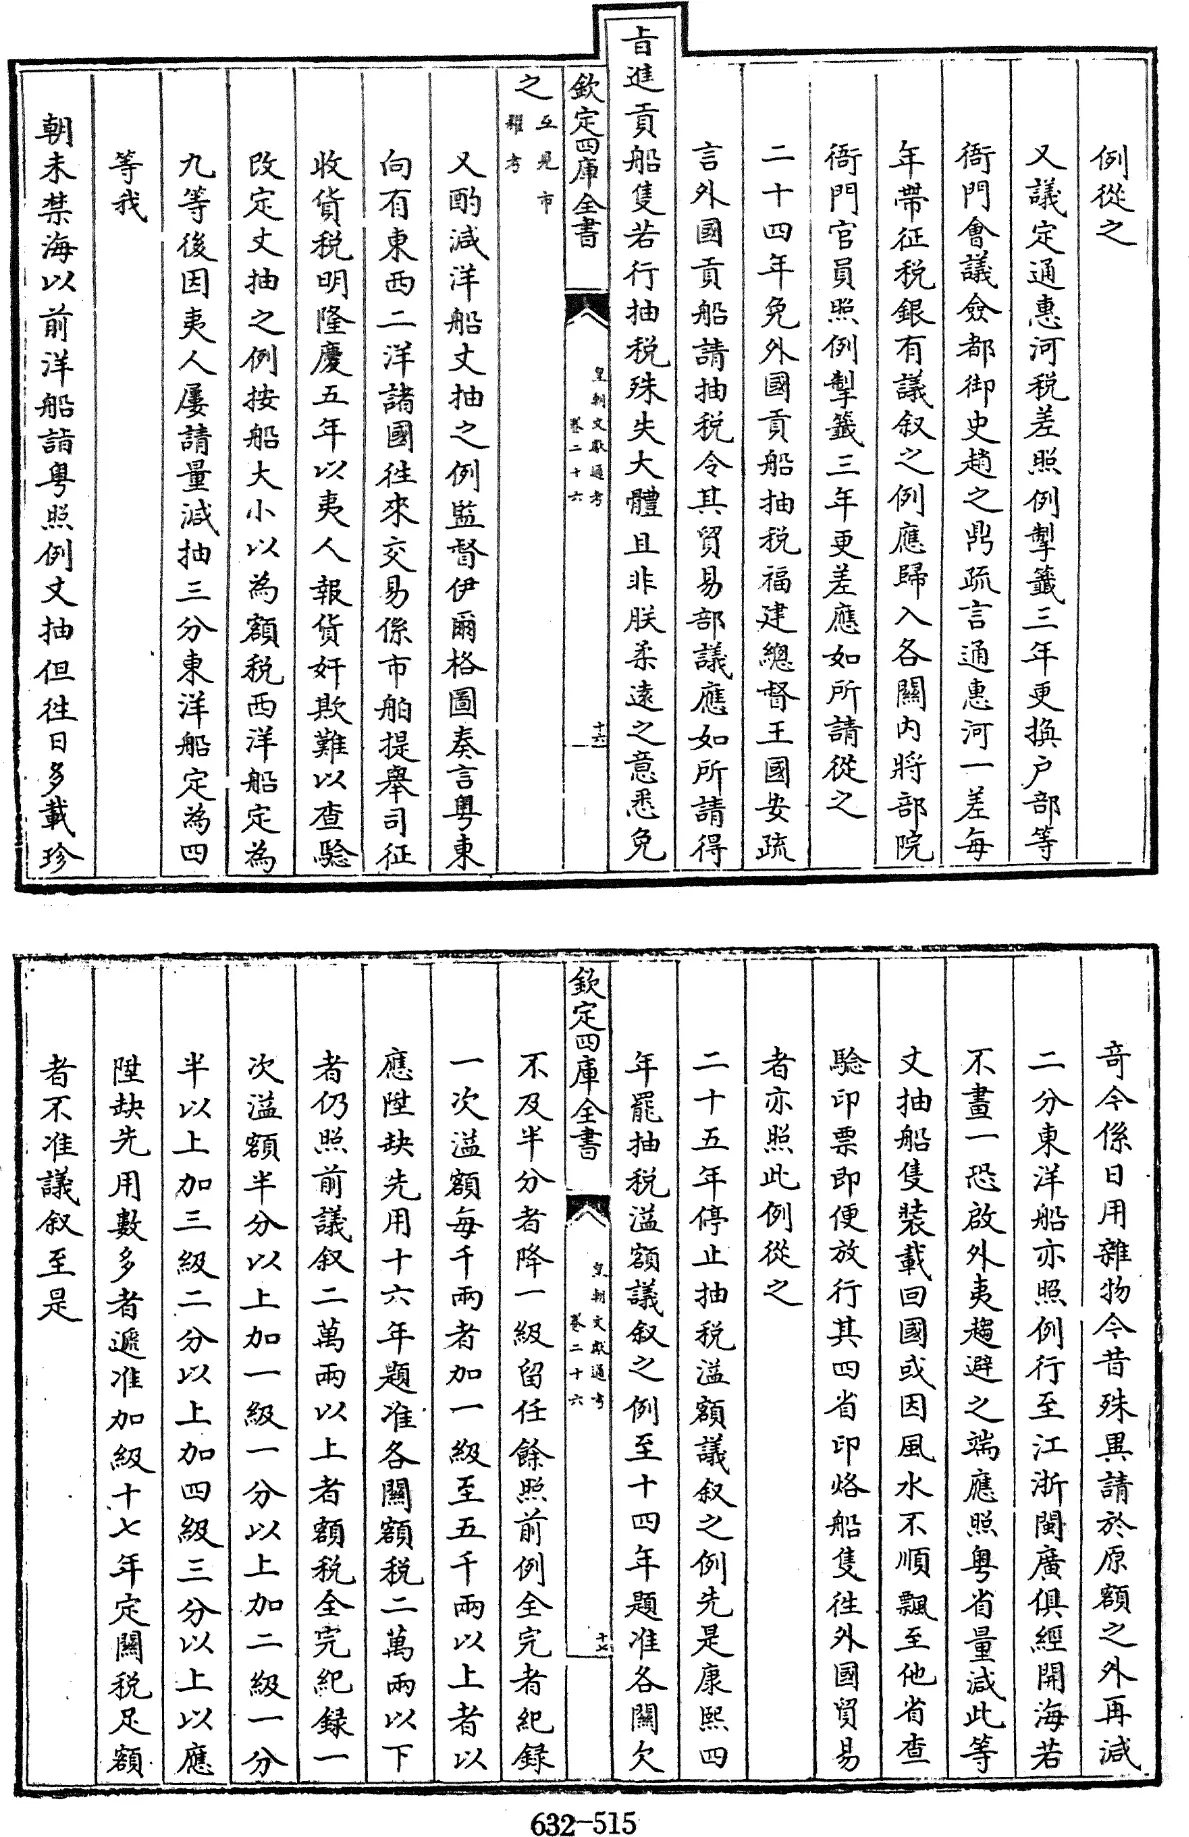 例從之
又議定通惠河税差照例掣籤三年更換户部等
衙門會議僉都御史趙之鼎疏言通惠河一差每
年帶征税銀有議叙之例應歸入各關内將部院
衙門官員照例掣籤三年更差應如所請從之
二十四年免外國貢船抽税福建總督王國安疏
言外國貢船請抽税令其貿易部議應如所請得
旨進貢船隻若行抽税殊失大體且非朕柔遠之意悉免
欽定四庫全書
皇朝文獻通考
卷二十六
十六
之互見市
糴考
又酌減洋船丈抽之例監督伊爾格圖奏言粤東
向有東西二洋諸國往來交易係市舶提舉司征
收貨税明隆慶五年以夷人報貨奸欺難以查驗
改定丈抽之例按船大小以為額税西洋船定為
九等後因夷人屢請量減抽三分東洋船定為四
等我
朝未禁海以前洋船詣粤照例丈抽但往日多載珍
奇今係日用雜物今昔殊異請於原額之外再減
二分東洋船亦照例行至江浙閩廣俱經開海若
不畫一恐啟外夷趨避之端應照粤省量減此等
丈抽船隻裝載回國或因風水不順飄至他省查
驗印票即便放行其四省印烙船隻往外國貿易
者亦照此例從之
二十五年停止抽税溢額議叙之例先是康熙四
年罷抽税溢額議叙之例至十四年題准各關欠
欽定四庫全書
皇朝文獻通考
卷二十六
十七
不及半分者降一級留任餘照前例全完者紀録
一次溢額每千兩者加一級至五千兩以上者以
應陞缺先用十六年題准各關額税二萬兩以下
者仍照前議叙二萬兩以上者額税全完紀録一
次溢額半分以上加一級一分以上加二級一分
半以上加三級二分以上加四級三分以上以應
陞缺先用數多者遞准加級十七年定關税足額
者不准議叙至是
632-515